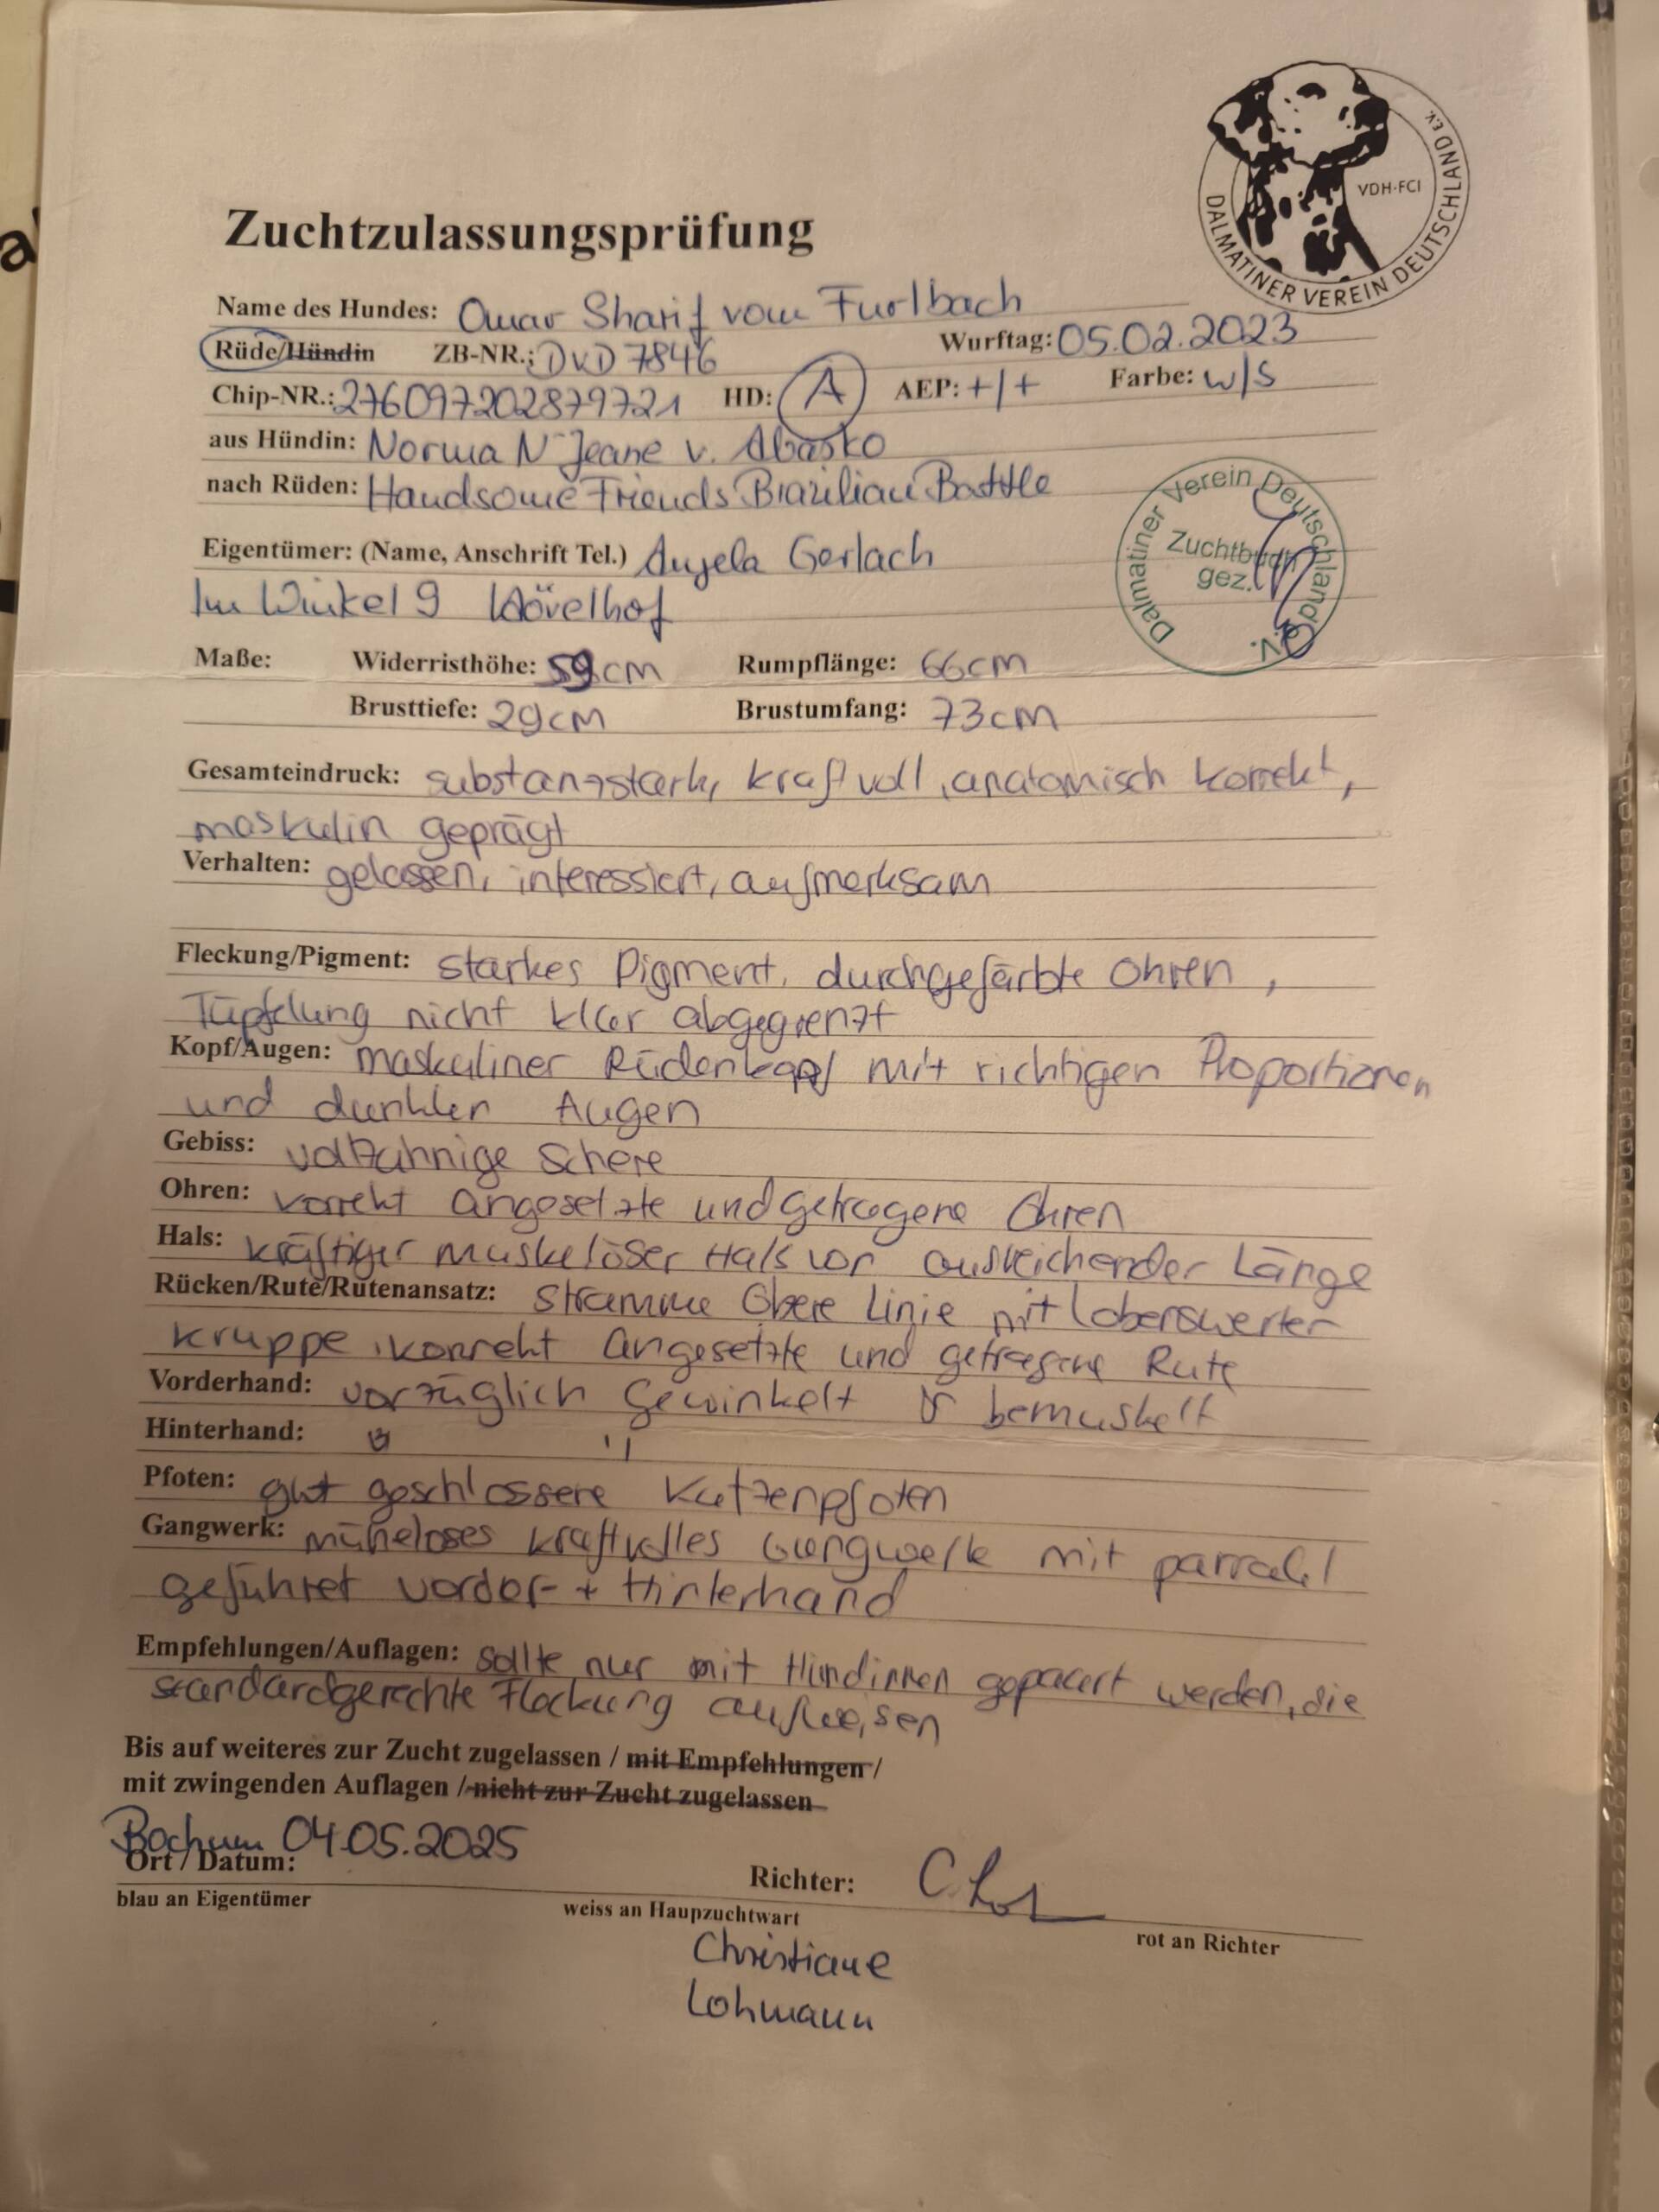 DALMATINER VEREIN DEUTSCHLAND E.V.
VDH-FCI
Zuchtzulassungsprüfung
Name des Hundes: Omar Sharif vom Furlbach
Rüde/Hündin ZB-NR.: DVD 7846 Wurftag: 05.02.2023
Chip-NR.: 276097202879721 HD: A AEP: +/+ Farbe: w/s
aus Hündin: Norma N'Jeane v. Abasko
nach Rüden: Handsome Friends Brazilian Battle
Dalmatiner Verein Deutschland e.V.
Zuchtbuch
gez.
Eigentümer: (Name, Anschrift Tel.) Angela Gerlach
Im Winkel 9 Hövelhof
Maße: Widerristhöhe: 59cm Rumpflänge: 66cm
Brusttiefe: 29cm Brustumfang: 73cm
Gesamteindruck: substanzstark, kraftvoll, anatomisch korrekt,
maskulin geprägt
Verhalten: gelassen, interessiert, aufmerksam
Fleckung/Pigment: starkes Pigment, durchgefärbte Ohren,
Tüpfelung nicht klar abgegrenzt
Kopf/Augen: maskuliner Rüdenkopf mit richtigen Proportionen
und dunklen Augen
Gebiss: vollzahnige Schere
Ohren: korrekt angesetzte und getragene Ohren
Hals: kräftiger muskelöser Hals von ausreichender Länge
Rücken/Rute/Rutenansatz: stramme Obere Linie mit lobenswerter
Kruppe, korrekt angesetzte und getragene Rute
Vorderhand: vorzüglich gewinkelt & bemuskelt
Hinterhand: " "
Pfoten: gut geschlossene Katzenpfoten
Gangwerk: müheloses kraftvolles Gangwerk mit parralel
geführter Vorder- + Hinterhand
Empfehlungen/Auflagen: sollte nur mit Hündinnen gepaart werden, die
standardgerechte Fleckung aufweisen
Bis auf weiteres zur Zucht zugelassen / mit Empfehlungen /
mit zwingenden Auflagen / nicht zur Zucht zugelassen
Bochum 04.05.2025
Ort / Datum: Richter:
blau an Eigentümer weiss an Haupzuchtwart rot an Richter
Christiane
Lohmann